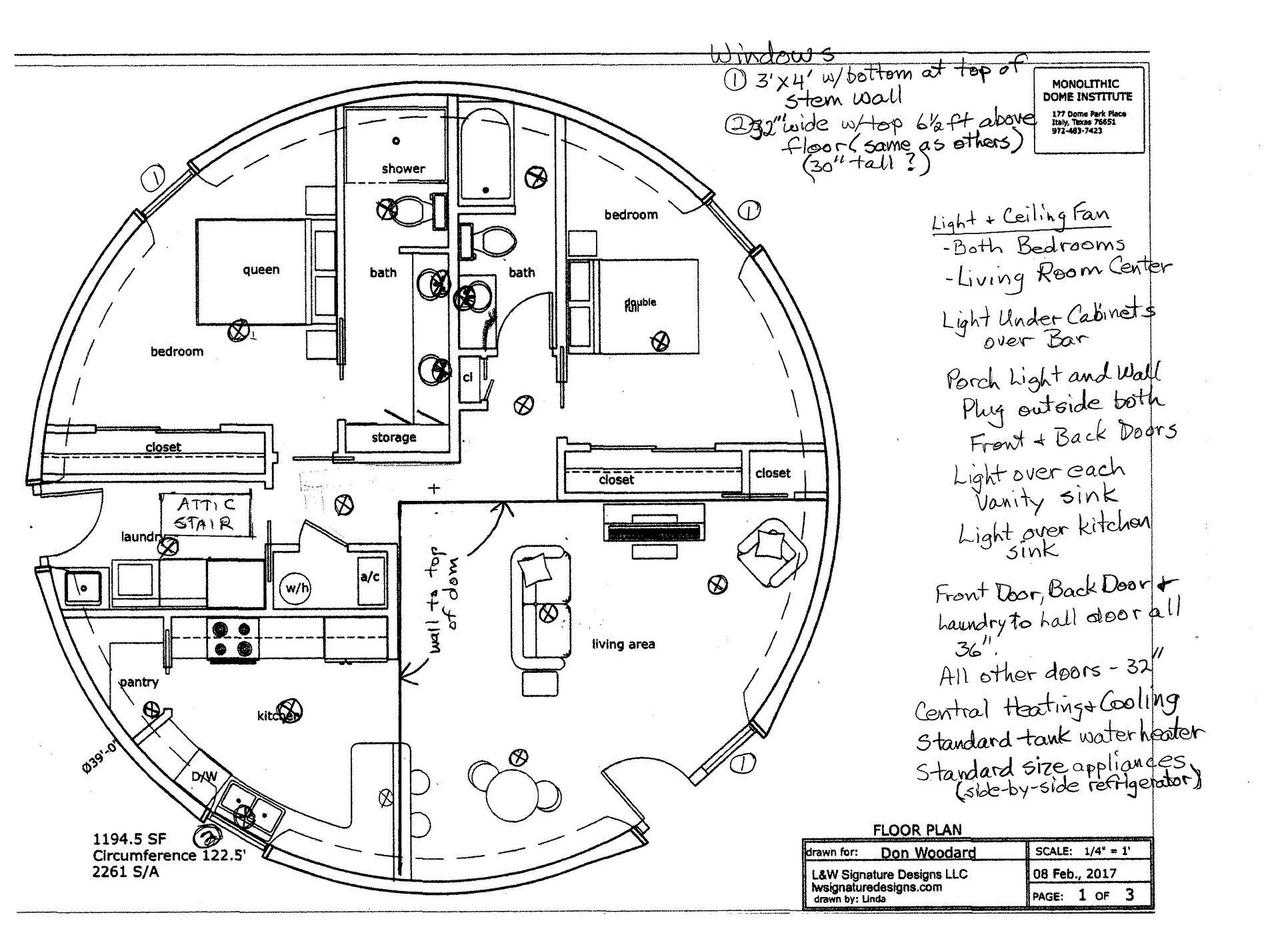 Windows
① 3'x4' w/bottom at top of
stem wall
② 32" wide w/top 6½ ft above
floor (same as others)
(30" tall?)
MONOLITHIC
DOME INSTITUTE
177 Dome Park Place
Italy, Texas 76651
972-483-7423
Light + Ceiling Fan
-Both Bedrooms
-Living Room Center
Light Under Cabinets
over Bar
Porch Light and Wall
Plug outside both
Front + Back Doors
Light over each
Vanity sink
Light over kitchen
sink
Front Door, Back Door +
Laundry to hall door all
36".
All other doors - 32"
Central Heating + Cooling
Standard tank water heater
Standard size appliances
(side-by-side refrigerator)
①
①
shower
bedroom
queen
bath
bath
double
full
bedroom
cl
storage
closet
closet
closet
ATTIC
STAIR
laundry
w/h
a/c
wall to top
of dom
living area
pantry
kitchen
①
Ø39'-0"
D/W
②
1194.5 SF
Circumference 122.5'
2261 S/A
FLOOR PLAN
drawn for: Don Woodard
SCALE: 1/4" = 1'
L&W Signature Designs LLC
lwsignaturedesigns.com
drawn by: Linda
08 Feb., 2017
PAGE: 1 OF 3